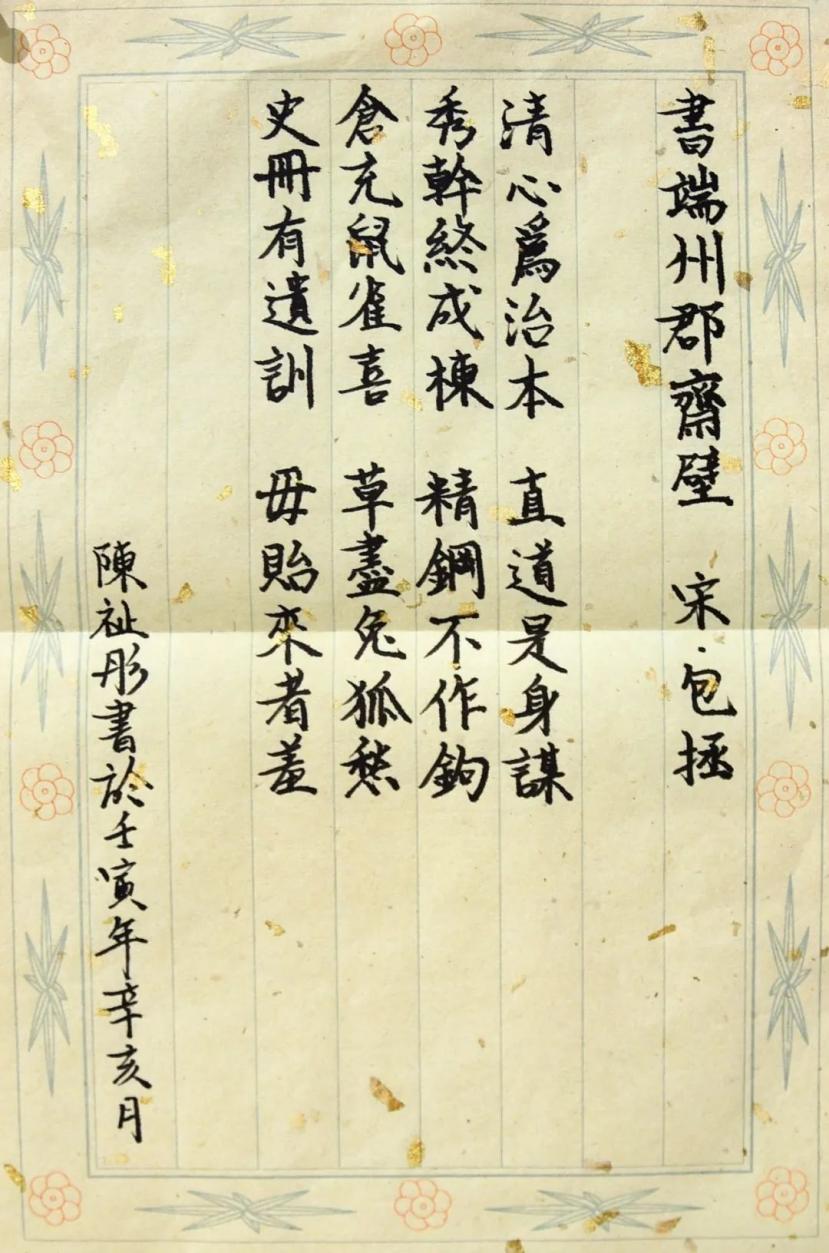 書端州郡齋壁 宋·包拯
清心爲治本 直道是身謀
秀幹終成棟 精鋼不作鉤
倉充鼠雀喜 草盡兔狐愁
史冊有遺訓 毋貽來者羞
陳祉彤書於壬寅年辛亥月